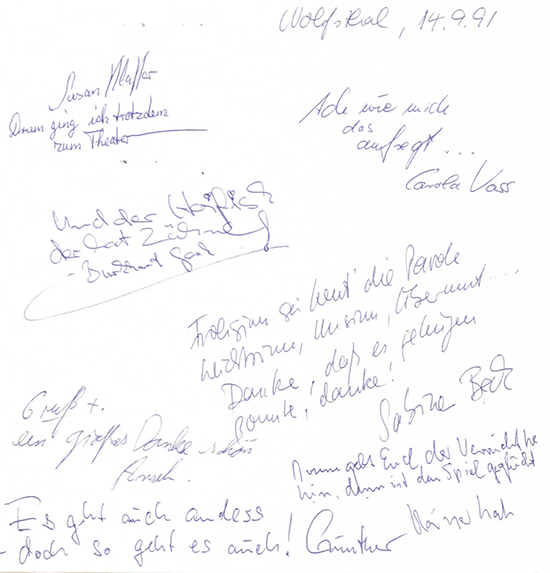 Wolfsthal, 14.9.91
Susan
Drum ging ich trotzdem
zum Theater
Ach wie mich
das
aufregt ...
Carola Vass
Und der Haifisch
der hat Zähne
- Burkhard
Frohsinn sei heut' die Parole
Leichtsinn, Unsinn, Übermut ....
Danke, daß es gelingen
konnte, danke!
Sabine Beck
Gruß +.
ein großes Danke-schön
Drum gebt Euch der Verrücktheit
hin, dann ist das Spiel geglückt
Es geht auch anders
- doch so geht es auch! Günther